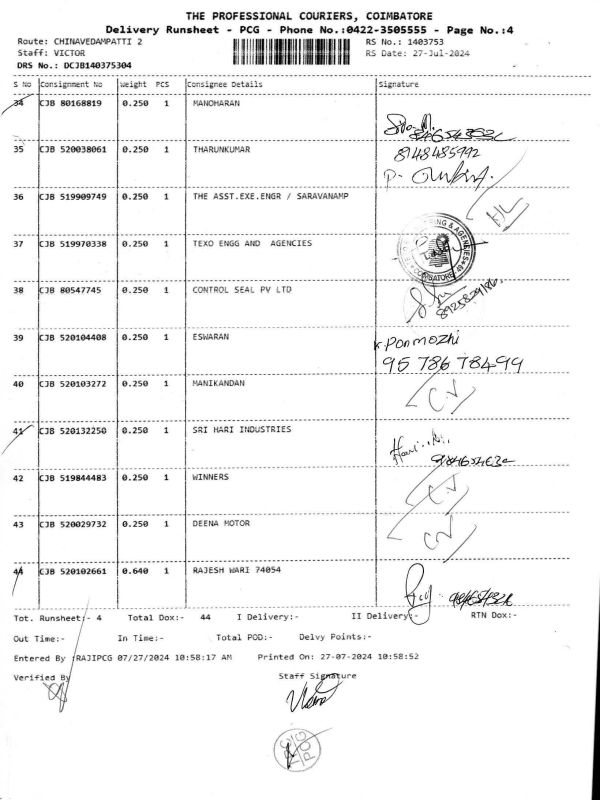 THE PROFESSIONAL COURIERS, COIMBATORE
Delivery Runsheet - PCG - Phone No.:0422-3505555 - Page No.:4
Route: CHINAVEDAMPATTI 2 RS No.: 1403753
Staff: VICTOR RS Date: 27-Jul-2024
DRS No.: DCJB140375304
S No Consignment No Weight PCS Consignee Details Signature
34 CJB 80168819 0.250 1 MANOHARAN
35 CJB 520038061 0.250 1 THARUNKUMAR 8148485992
36 CJB 519909749 0.250 1 THE ASST.EXE.ENGR / SARAVANAMP
37 CJB 519970338 0.250 1 TEXO ENGG AND AGENCIES
38 CJB 80547745 0.250 1 CONTROL SEAL PV LTD
39 CJB 520104408 0.250 1 ESWARAN K.Ponmozhi
95786 78499
40 CJB 520103272 0.250 1 MANIKANDAN
41 CJB 520132250 0.250 1 SRI HARI INDUSTRIES
42 CJB 519844483 0.250 1 WINNERS
43 CJB 520029732 0.250 1 DEENA MOTOR
44 CJB 520102661 0.640 1 RAJESH WARI 74054
Tot. Runsheet:- 4 Total Dox:- 44 I Delivery:- II Delivery:- RTN Dox:-
Out Time:- In Time:- Total POD:- Delvy Points:-
Entered By :RAJIPCG 07/27/2024 10:58:17 AM Printed On: 27-07-2024 10:58:52
Verified By Staff Signature
PCG